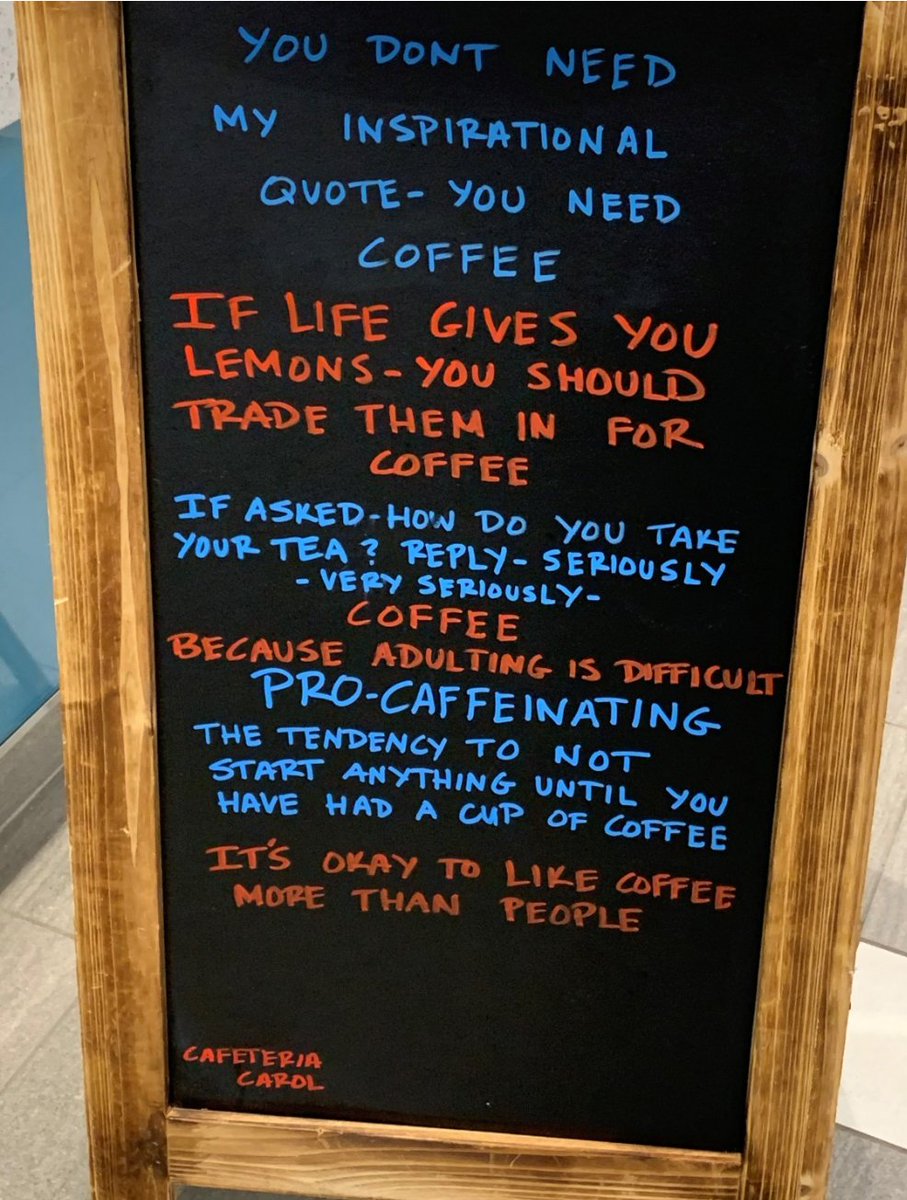 YOU DONT NEED
MY INSPIRATIONAL
QUOTE- YOU NEED
COFFEE
IF LIFE GIVES YOU
LEMONS-YOU SHOULD
TRADE THEM IN FOR
COFFEE
IF ASKED-HOW DO YOU TAKE
YOUR TEA? REPLY- SERIOUSLY
-VERY SERIOUSLY-
COFFEE
BECAUSE ADULTING IS DIFFICULT
PRO-CAFFEINATING
THE TENDENCY TO NOT
START ANYTHING UNTIL YOU
HAVE HAD A CUP OF COFFEE
IT'S OKAY TO LIKE COFFEE
MORE THAN PEOPLE
CAFETERIA
CAROL